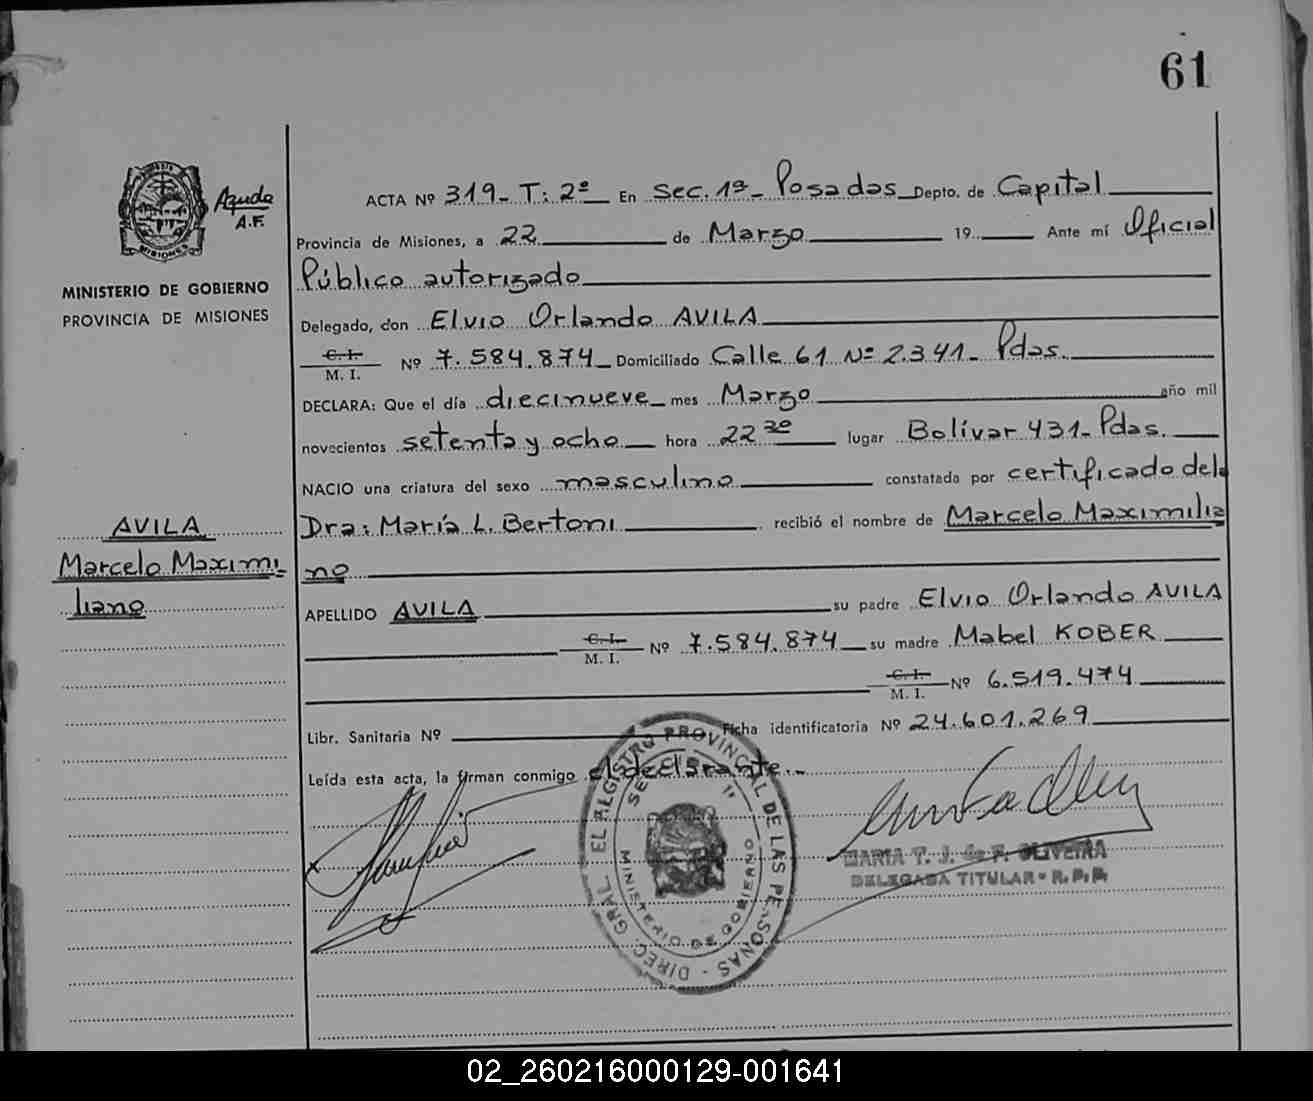 61
Ayuda
A.F.
MINISTERIO DE GOBIERNO
PROVINCIA DE MISIONES
AVILA
Marcelo Maximi_
liano
ACTA Nº 319_ T: 2º En Sec. 1ª_ Posadas Depto. de Capital
Provincia de Misiones, a 22 de Marzo 19 Ante mí Oficial
Público autorizado
Delegado, don Elvio Orlando AVILA
C. I.
M. I. Nº 7.584.874_ Domiciliado Calle 61 Nº 2.341_ Pdas.
DECLARA: Que el día diecinueve_ mes Marzo año mil
novecientos setenta y ocho hora 22 30 lugar Bolívar 431_ Pdas.
NACIO una criatura del sexo masculino constatada por certificado de la
Dra: María L. Bertoni recibió el nombre de Marcelo Maximilia
no
APELLIDO AVILA su padre Elvio Orlando AVILA
C. I.
M. I. Nº 7.584.874 su madre Mabel KOBER
C. I.
M. I. Nº 6.519.474
Libr. Sanitaria Nº Ficha identificatoria Nº 24.601.269
Leída esta acta, la firman conmigo el declarante._
DIREC. GRAL. EL REGISTRO PROVINCIAL DE LAS PERSONAS
SEC 1ª
MINISTERIO DE GOBIERNO
MARIA T. J. de F. OLIVEIRA
DELEGADA TITULAR - R. P. P.
02_260216000129-001641